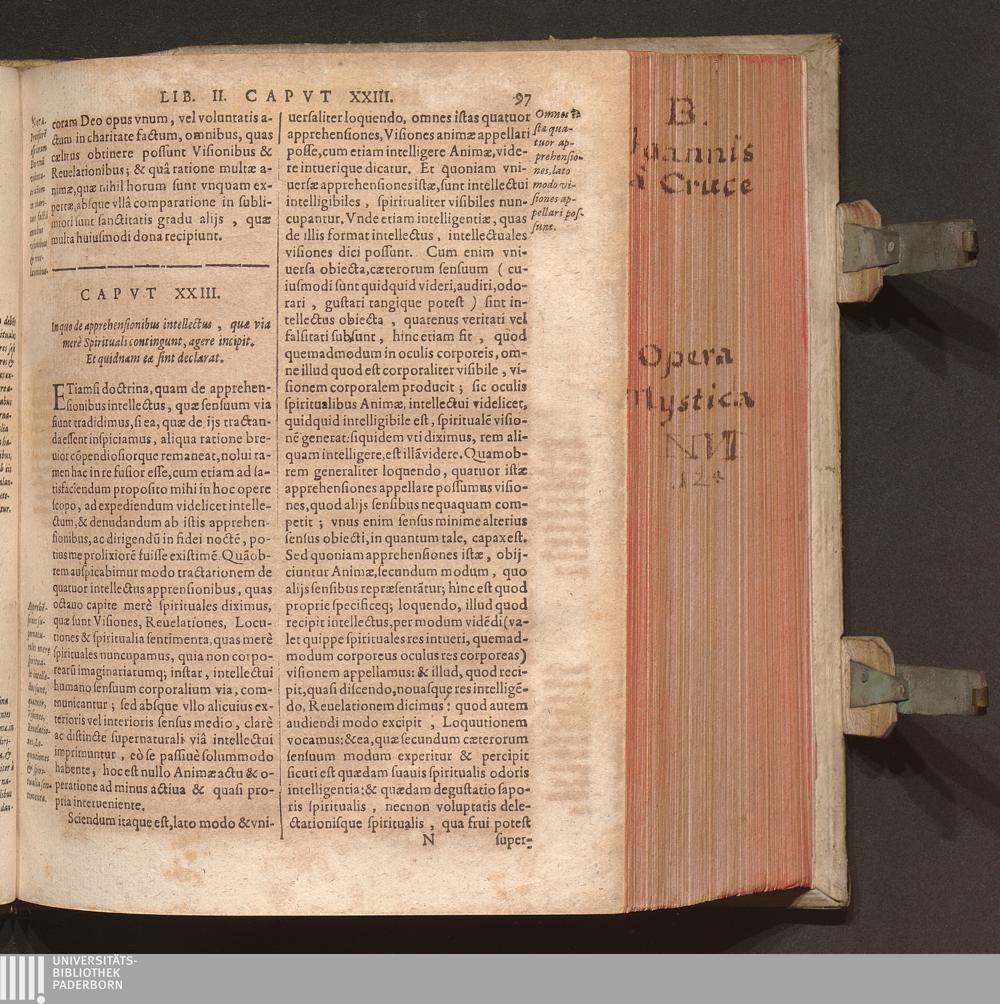 LIB. II. CAPVT XXIII. 97
coram Deo opus vnum, vel voluntatis a-
ctum in charitate factum, omnibus, quas
cælitus obtinere possunt Visionibus &
Reuelationibus; & quâ ratione multæ a-
nimæ, quæ nihil horum sunt vnquam ex-
pertæ, absque vllâ comparatione in subli-
miori sunt sanctitatis gradu alijs, quæ
multa huiusmodi dona recipiunt.
CAPVT XXIII.
In quo de apprehensionibus intellectus, quæ via
merè Spirituali contingunt, agere incipit.
Et quidnam eæ sint declarat.
ETiamsi doctrina, quam de apprehen-
sionibus intellectus, quæ sensuum via
fiunt tradidimus, si ea, quæ de ijs tractan-
da essent inspiciamus, aliqua ratione bre-
uior cõpendiosiorque remaneat, nolui ta-
men hac in re fusior esse, cum etiam ad sa-
tisfaciendum proposito mihi in hoc opere
scopo, ad expediendum videlicet intelle-
ctum, & denudandum ab istis apprehen-
sionibus, ac dirigendũ in fidei noctẽ, po-
tius me prolixiorẽ fuisse existimẽ. Quãob-
rem auspicabimur modo tractationem de
quatuor intellectus apprensionibus, quas
octauo capite merè spirituales diximus,
quæ sunt Visiones, Reuelationes, Locu-
tiones & spiritualia sentimenta, quas merè
spirituales nuncupamus, quia non corpo-
rearũ imaginariarumq; instar, intellectui
humano sensuum corporalium via, com-
municantur; sed absque vllo alicuius ex-
terioris vel interioris sensus medio, clarè
ac distincte supernaturali viâ intellectui
imprimuntur, eò se passiuè solummodo
habente, hoc est nullo Animæ actu & o-
peratione ad minus actiua & quasi pro-
pria interueniente.
Sciendum itaque est, lato modo & vni-
uersaliter loquendo, omnes istas quatuor
apprehensiones, Visiones animæ appellari
posse, cum etiam intelligere Animæ, vide-
re intuerique dicatur. Et quoniam vni-
uersæ apprehensiones istæ, sunt intellectui
intelligibiles, spiritualiter visibiles nun-
cupantur. Vnde etiam intelligentiæ, quas
de illis format intellectus, intellectuales
visiones dici possunt. Cum enim vni-
uersa obiecta, cæterorum sensuum (cu-
iusmodi sunt quidquid videri, audiri, odo-
rari, gustari tangique potest) sint in-
tellectus obiecta, quatenus veritati vel
falsitati subsunt, hinc etiam fit, quòd
quemadmodum in oculis corporeis, om-
ne illud quod est corporaliter visibile, vi-
sionem corporalem producit; sic oculis
spiritualibus Animæ, intellectui videlicet,
quidquid intelligibile est, spiritualẽ visio-
nẽ generat: siquidem vti diximus, rem ali-
quam intelligere, est illã videre. Quamob-
rem generaliter loquendo, quatuor istæ
apprehensiones appellare possumus visio-
nes, quod alijs sensibus nequaquam com-
petit; vnus enim sensus minime alterius
sensus obiecti, in quantum tale, capax est.
Sed quoniam apprehensiones istæ, obij-
ciuntur Animæ, secundum modum, quo
alijs sensibus repræsentãtur; hinc est quod
proprie specificeq; loquendo, illud quod
recipit intellectus, per modum vidẽdi (va-
let quippe spirituales res intueri, quemad-
modum corporeus oculus res corporeas)
visionem appellamus: & illud, quod reci-
pit, quasi discendo, nouasque res intelligẽ-
do, Reuelationem dicimus: quod autem
audiendi modo excipit, Loquutionem
vocamus: & ea, quæ secundum cæterorum
sensuum modum experitur & percipit
sicuti est quædam suauis spiritualis odoris
intelligentia; & quædam degustatio sapo-
ris spiritualis, necnon voluptatis dele-
ctationisque spiritualis, qua frui potest
N super-
Omnes is-
stæ qua-
tuor ap-
prehensio-
nes, lato
modo vi-
siones ap-
pellari pos-
sunt.
B.
Joannis
à Cruce
Opera
Mystica
UNIVERSITÄTS-
BIBLIOTHEK
PADERBORN